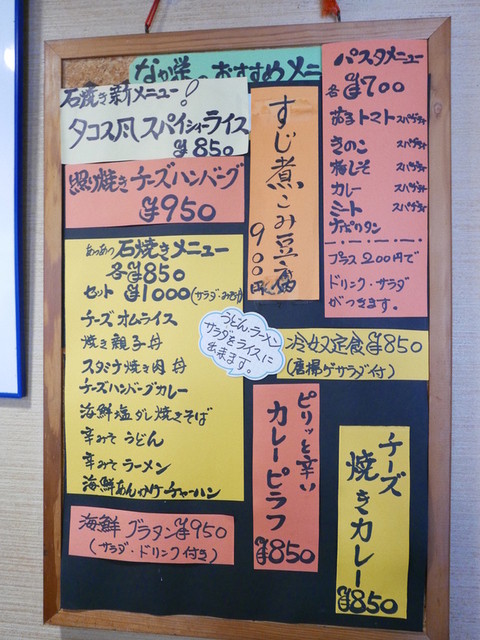 なか栄のおすすめメニ
石焼き新メニュー!
タコス風スパイシーライス
¥850
照り焼きチーズハンバーグ
¥950
すじ煮こみ豆腐
900円
パスタメニュー
各¥700
トマトスパゲティ
きのこ スパゲティ
梅しそ スパゲティ
カレー スパゲティ
ミート スパゲティ
ナポリタン
プラス200円で
ドリンク・サラダ
がつきます。
あつあつ石焼きメニュー
各¥850
セット ¥1000(サラダ・みそ汁)
チーズオムライス
焼き親子丼
スタミナ焼き肉丼
チーズハンバーグカレー
海鮮塩ダレ焼きそば
辛みそうどん
辛みそラーメン
海鮮あんかけチャーハン
うどん・ラーメン
サラダをライスに
出来ます。
冷奴定食¥850
(唐揚げサラダ付)
ピリッと辛い
カレーピラフ
¥850
チーズ
焼きカレー
¥850
海鮮グラタン¥950
(サラダ・ドリンク付き)